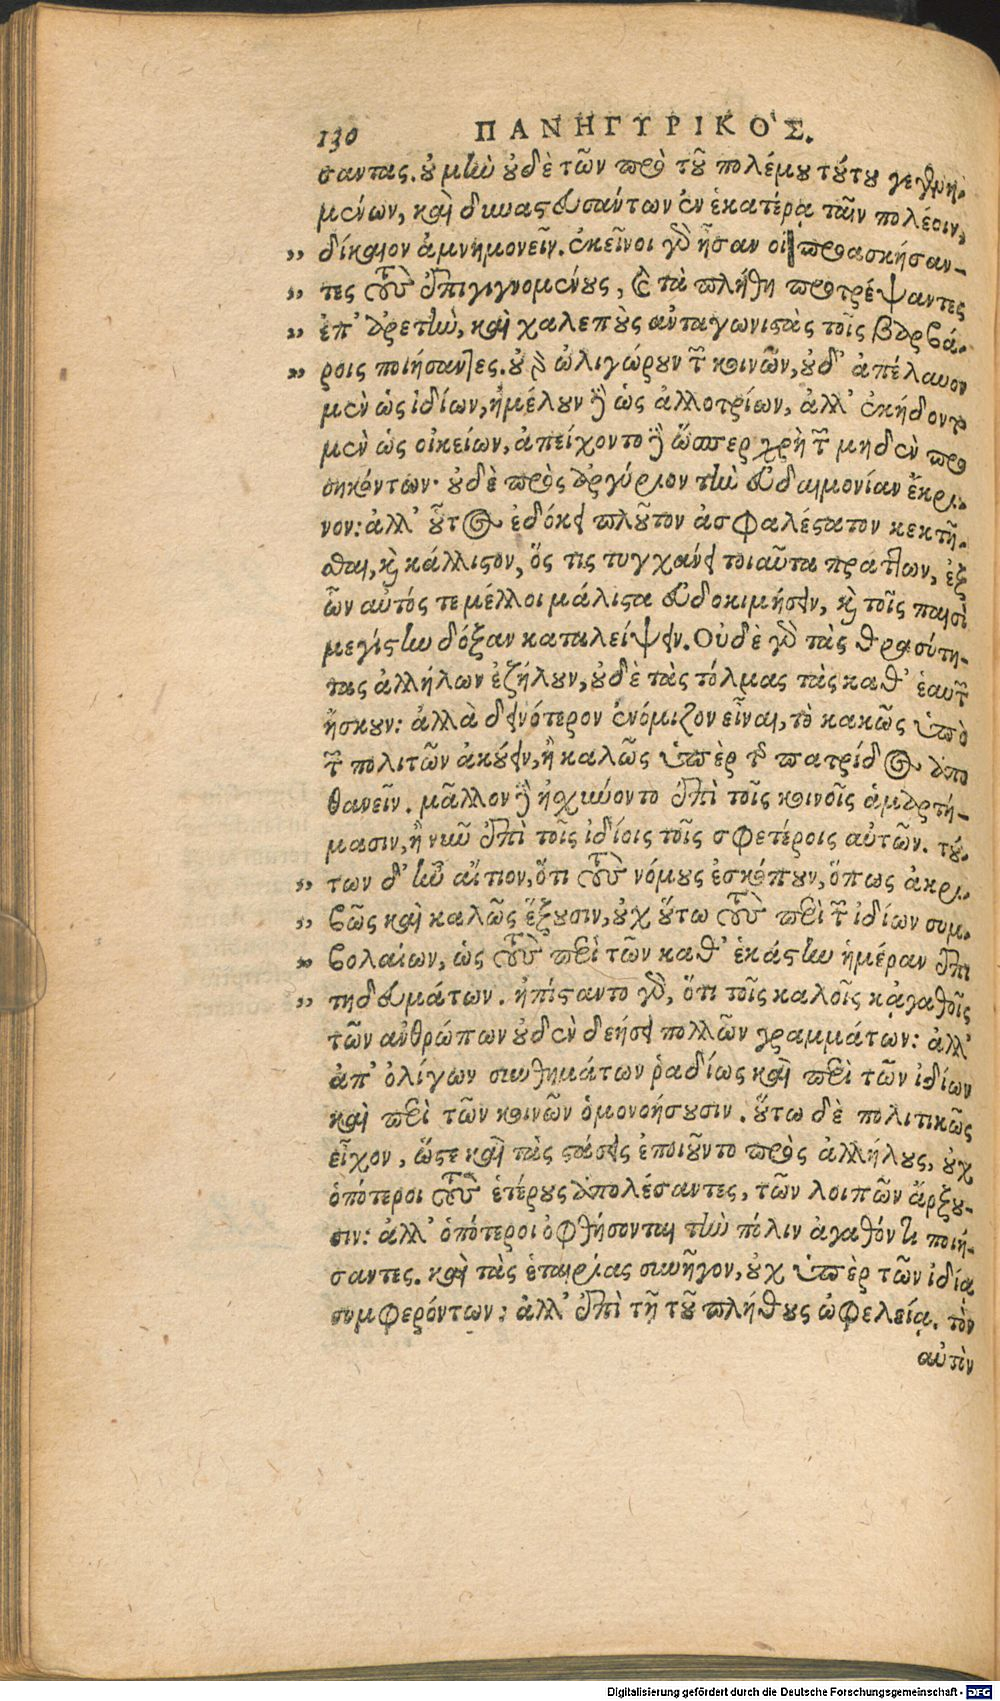 130 ΠΑΝΗΓΥΡΙΚΟ'Σ.
σαντας. οὐ μὴν οὐδὲ τῶν πρὸ τοῦ πολέμου τούτου γεγενη-
μένων, καὶ δυναστευσάντων ἐν ἑκατέρᾳ ταῖν πολέοιν,
„ δίκαιον ἀμνημονεῖν. ἐκεῖνοι γὰρ ἦσαν οἱ προασκήσαν-
„ τες τοὺς ἐπιγιγνομένους, καὶ τὰ πλήθη προτρέψαντες
„ ἐπ' ἀρετὴν, καὶ χαλεποὺς ἀνταγωνιστὰς τοῖς βαρβά-
„ ροις ποιήσαντες. οὐ γὰρ ὠλιγώρουν τῶν κοινῶν, οὐδ' ἀπέλαυον
μὲν ὡς ἰδίων, ἠμέλουν δὲ ὡς ἀλλοτρίων, ἀλλ' ἐκήδοντο
μὲν ὡς οἰκείων, ἀπείχοντο δὲ ὥσπερ χρὴ τῶν μηδὲν προ
σηκόντων· οὐδὲ πρὸς ἀργύριον τὴν εὐδαιμονίαν ἔκρι-
νον: ἀλλ' οὗτος ἐδόκει πλοῦτον ἀσφαλέστατον κεκτῆ-
σθαι, καὶ κάλλιστον, ὅς τις τυγχάνει τοιαῦτα πράττων, ἐξ
ὧν αὐτός τε μέλλοι μάλιστα εὐδοκιμήσειν, καὶ τοῖς παισὶ
μεγίστην δόξαν καταλείψειν. Οὐδὲ γὰρ τὰς θρασύτη-
τας ἀλλήλων ἐζήλουν, οὐδὲ τὰς τόλμας τὰς καθ' ἑαυτῶν
ἤσκουν: ἀλλὰ δεινότερον ἐνόμιζον εἶναι, τὸ κακῶς ὑπὸ
τῶν πολιτῶν ἀκούειν, ἢ καλῶς ὑπὲρ τῆς πατρίδος ἀπο
θανεῖν. μᾶλλον δὲ ἠσχύνοντο ἐπὶ τοῖς κοινοῖς ἁμαρτή-
μασιν, ἢ νῦν ἐπὶ τοῖς ἰδίοις τοῖς σφετέροις αὐτῶν. τού-
„ των δ' ἦν αἴτιον, ὅτι τοὺς νόμους ἐσκόπουν, ὅπως ἀκρι-
„ βῶς καὶ καλῶς ἕξουσιν, οὐχ οὕτω τοὺς περὶ τῶν ἰδίων συμ-
„ βολαίων, ὡς τοὺς περὶ τῶν καθ' ἑκάστην ἡμέραν ἐπι
„ τηδευμάτων. ἠπίσταντο γὰρ, ὅτι τοῖς καλοῖς κᾀγαθοῖς
τῶν ἀνθρώπων οὐδὲν δεήσει πολλῶν γραμμάτων: ἀλλ'
ἀπ' ὀλίγων συνθημάτων ῥαδίως καὶ περὶ τῶν ἰδίων
καὶ περὶ τῶν κοινῶν ὁμονοήσουσιν. οὕτω δὲ πολιτικῶς
εἶχον, ὥστε καὶ τὰς στάσεις ἐποιοῦντο πρὸς ἀλλήλους, οὐχ
ὁπότεροι τοὺς ἑτέρους ἀπολέσαντες, τῶν λοιπῶν ἄρξου-
σιν: ἀλλ' ὁπότεροι ὀφθήσονται τὴν πόλιν ἀγαθόν τι ποιή-
σαντες. καὶ τὰς ἑταιρίας συνῆγον, οὐχ ὑπὲρ τῶν ἰδίᾳ
συμφερόντων: ἀλλ' ἐπὶ τῇ τοῦ πλήθους ὠφελείᾳ. τὸν
αὐτὸν
Digitalisierung gefördert durch die Deutsche Forschungsgemeinschaft - DFG